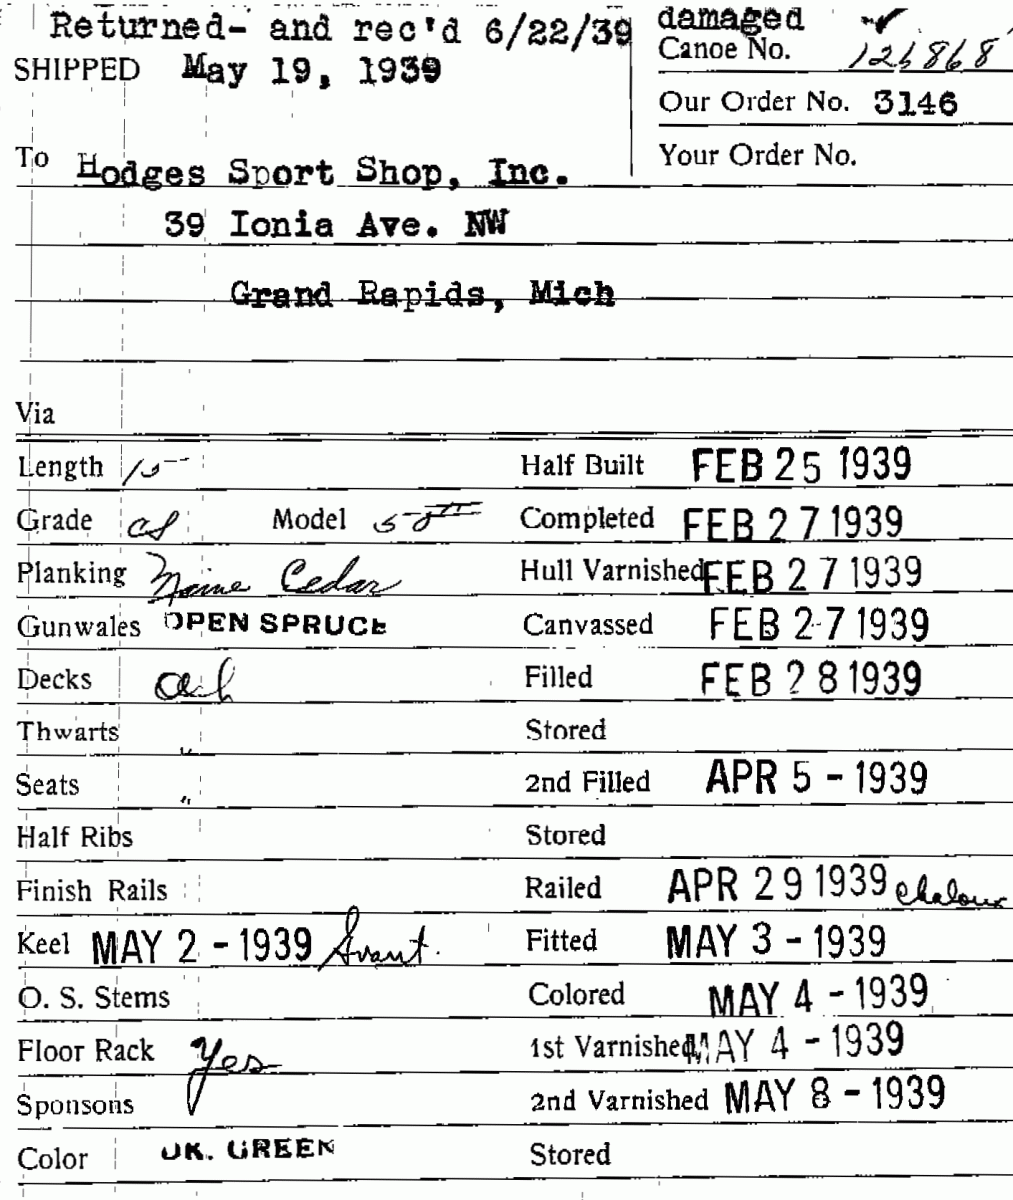 Returned- and rec'd 6/22/39
damaged ✓
SHIPPED May 19, 1939
Canoe No. 126868
Our Order No. 3146
To Hodges Sport Shop, Inc.
Your Order No.
39 Ionia Ave. NW
Grand Rapids, Mich
Via
Length 15 Half Built FEB 25 1939
Grade CS Model 50 Completed FEB 27 1939
Planking Maine Cedar Hull Varnished FEB 27 1939
Gunwales OPEN SPRUCE Canvassed FEB 27 1939
Decks Ash Filled FEB 28 1939
Thwarts " Stored
Seats " 2nd Filled APR 5 - 1939
Half Ribs Stored
Finish Rails Railed APR 29 1939 Chaloux
Keel MAY 2 - 1939 Avant. Fitted MAY 3 - 1939
O. S. Stems Colored MAY 4 - 1939
Floor Rack Yes 1st Varnished MAY 4 - 1939
Sponsons 2nd Varnished MAY 8 - 1939
Color DK. GREEN Stored